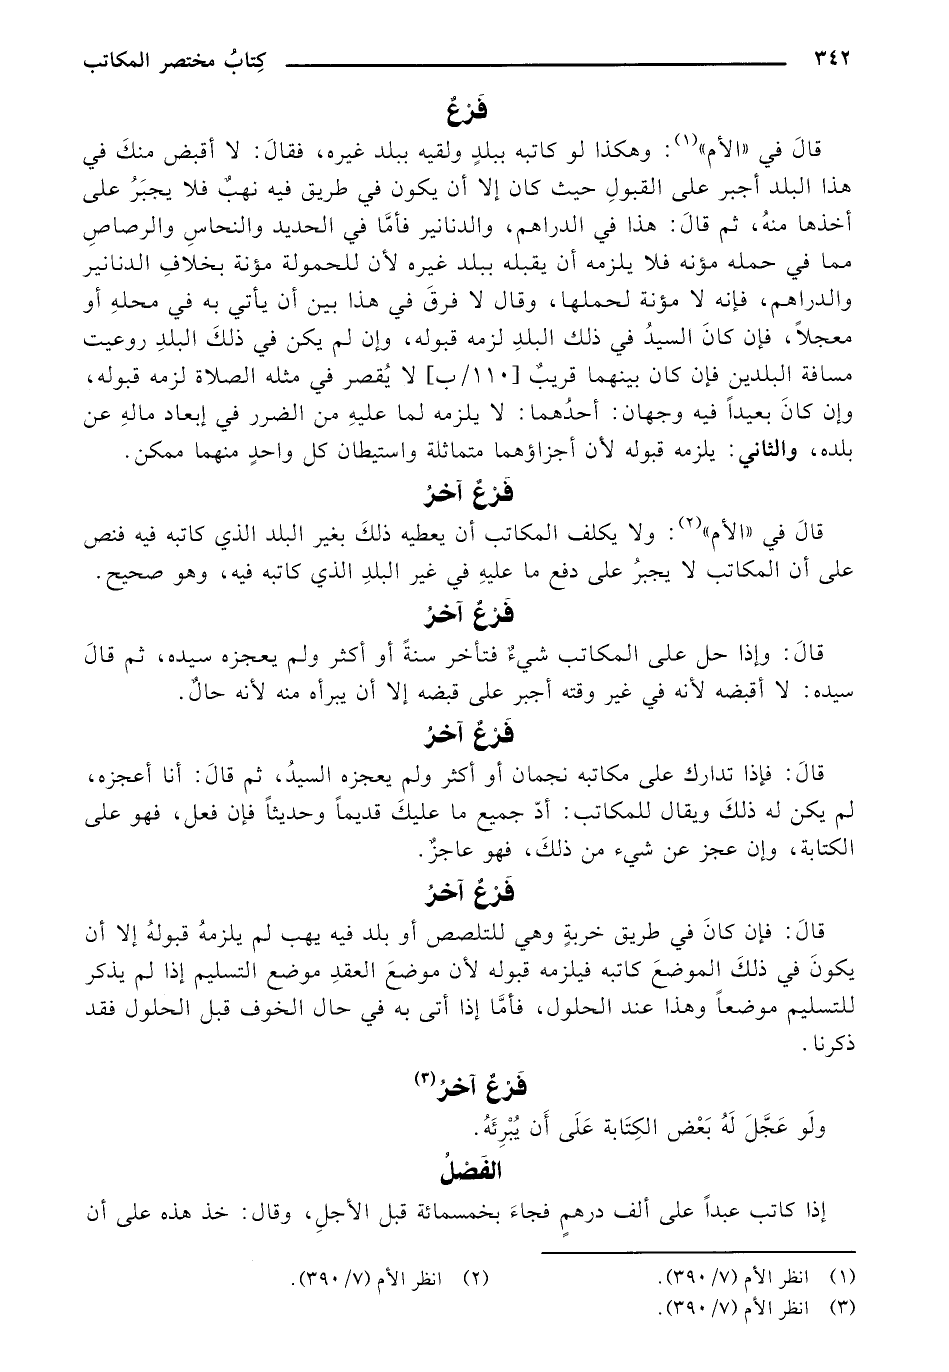 ٣٤٢ كِتابُ مختصر المكاتب
فَرْعٌ
قالَ في «الأم»(١): وهكذا لو كاتبه ببلدٍ ولقيه ببلد غيره، فقالَ: لا أقبض منكَ في
هذا البلد أجبر على القبولِ حيث كان إلا أن يكون في طريق فيه نهبٌ فلا يجبَرُ على
أخذها منهُ، ثم قالَ: هذا في الدراهم، والدنانير فأمَّا في الحديد والنحاسِ والرصاصِ
مما في حمله مؤنه فلا يلزمه أن يقبله ببلد غيره لأن للحمولة مؤنة بخلافِ الدنانير
والدراهم، فإنه لا مؤنة لحملها، وقال لا فرقَ في هذا بين أن يأتي به في محلهِ أو
معجلاً، فإن كانَ السيدُ في ذلك البلدِ لزمه قبوله، وإن لم يكن في ذلكَ البلدِ روعيت
مسافة البلدين فإن كان بينهما قريبٌ [١١٠/ب] لا يُقصر في مثله الصلاة لزمه قبوله،
وإن كانَ بعيداً فيه وجهان: أحدُهما: لا يلزمه لما عليهِ من الضرر في إبعاد مالهِ عن
بلده، والثاني: يلزمه قبوله لأن أجزاؤهما متماثلة واستيطان كل واحدٍ منهما ممكن.
فَرْعٌ آخرُ
قالَ في «الأم»(٢): ولا يكلف المكاتب أن يعطيه ذلكَ بغير البلد الذي كاتبه فيه فنص
على أن المكاتب لا يجبرُ على دفع ما عليهِ في غير البلدِ الذي كاتبه فيه، وهو صحيح.
فَرْعٌ آخرُ
قالَ: وإذا حل على المكاتب شيءٌ فتأخر سنةً أو أكثر ولم يعجزه سيده، ثم قالَ
سيده: لا أقبضه لأنه في غير وقته أجبر على قبضه إلا أن يبرأه منه لأنه حالٌ.
فَرْعٌ آخرُ
قالَ: فإذا تدارك على مكاتبه نجمان أو أكثر ولم يعجزه السيدُ، ثم قالَ: أنا أعجزه،
لم يكن له ذلكَ ويقال للمكاتب: أدّ جميع ما عليكَ قديماً وحديثاً فإن فعل، فهو على
الكتابة، وإن عجز عن شيء من ذلكَ، فهو عاجزٌ.
فَرْعٌ آخرُ
قالَ: فإن كانَ في طريق خربةٍ وهي للتلصص أو بلد فيه يهب لم يلزمهُ قبولهُ إلا أن
يكونَ في ذلكَ الموضعَ كاتبه فيلزمه قبوله لأن موضعَ العقدِ موضع التسليم إذا لم يذكر
للتسليم موضعاً وهذا عند الحلول، فأمَّا إذا أتى به في حال الخوف قبل الحلول فقد
ذكرنا.
فَرْعٌ آخرُ(٣)
ولَو عَجَّلَ لَهُ بَعْض الكِتَابة عَلَى أَن يُبْرِئَهُ.
الفَصْلُ
إذا كاتب عبداً على ألف درهمٍ فجاءَ بخمسمائة قبل الأجلِ، وقال: خذ هذه على أن
(١) انظر الأم (٣٩٠/٧). (٢) انظر الأم (٣٩٠/٧).
(٣) انظر الأم (٣٩٠/٧).